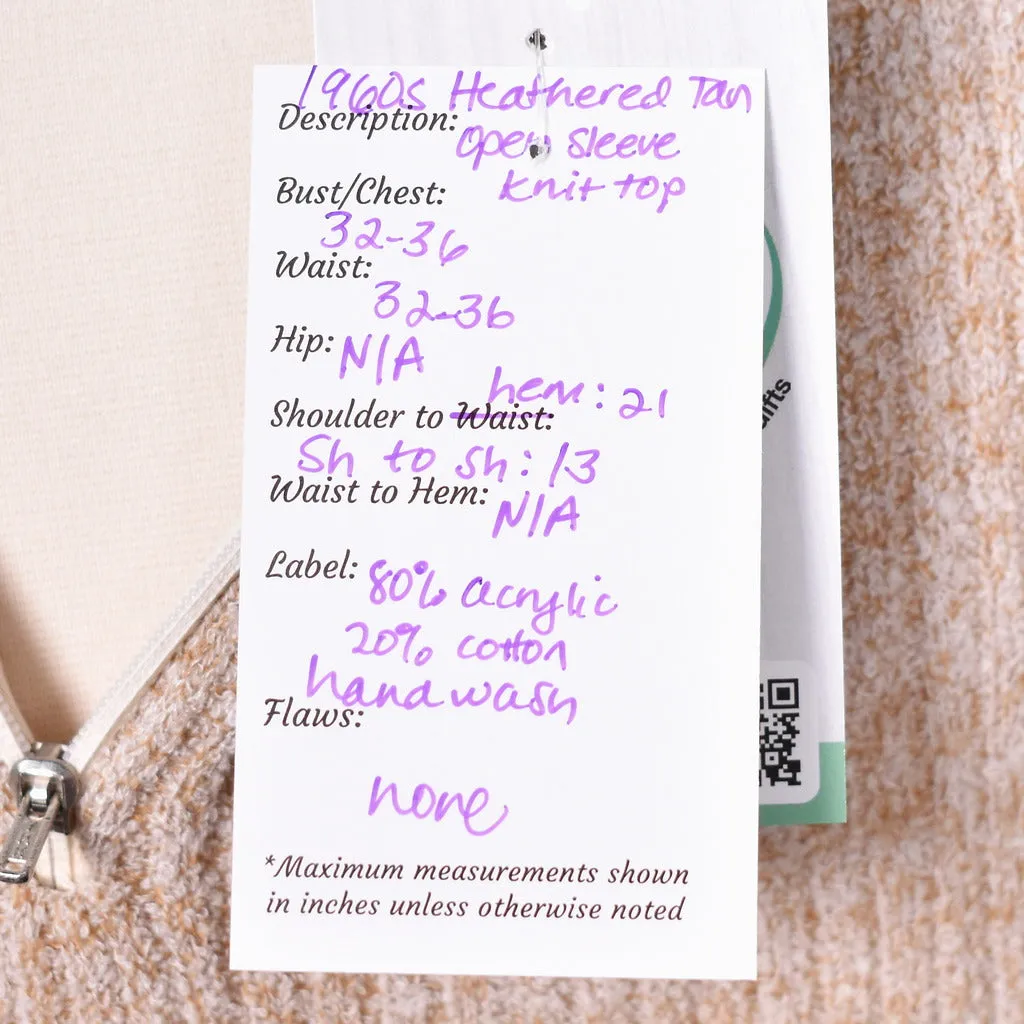 1960s Heathered Tan
Description:
Open sleeve
knit top
Bust/Chest:
32-36
Waist:
32-36
Hip: N/A
hem: 21
Shoulder to Waist:
Sh to sh: 13
Waist to Hem:
N/A
Label: 80% acrylic
20% cotton
handwash
Flaws:
none
*Maximum measurements shown
in inches unless otherwise noted